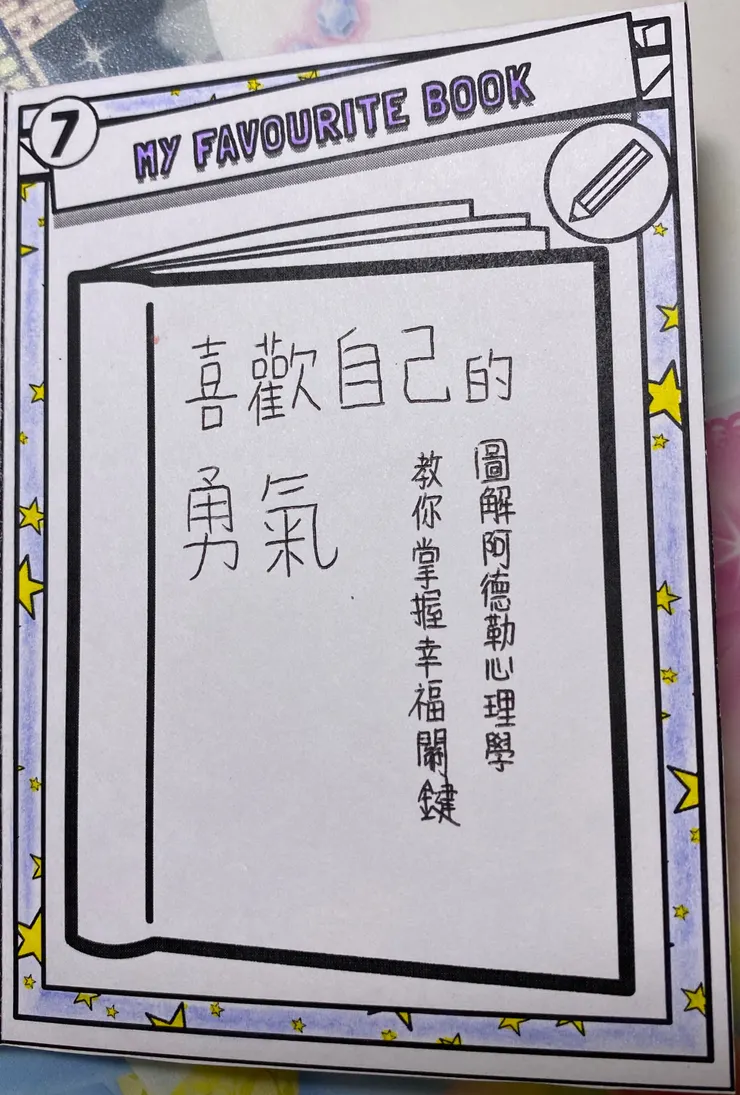 7
MY FAVOURITE BOOK
喜歡自己的
勇氣
圖解阿德勒心理學
教你掌握幸福關鍵